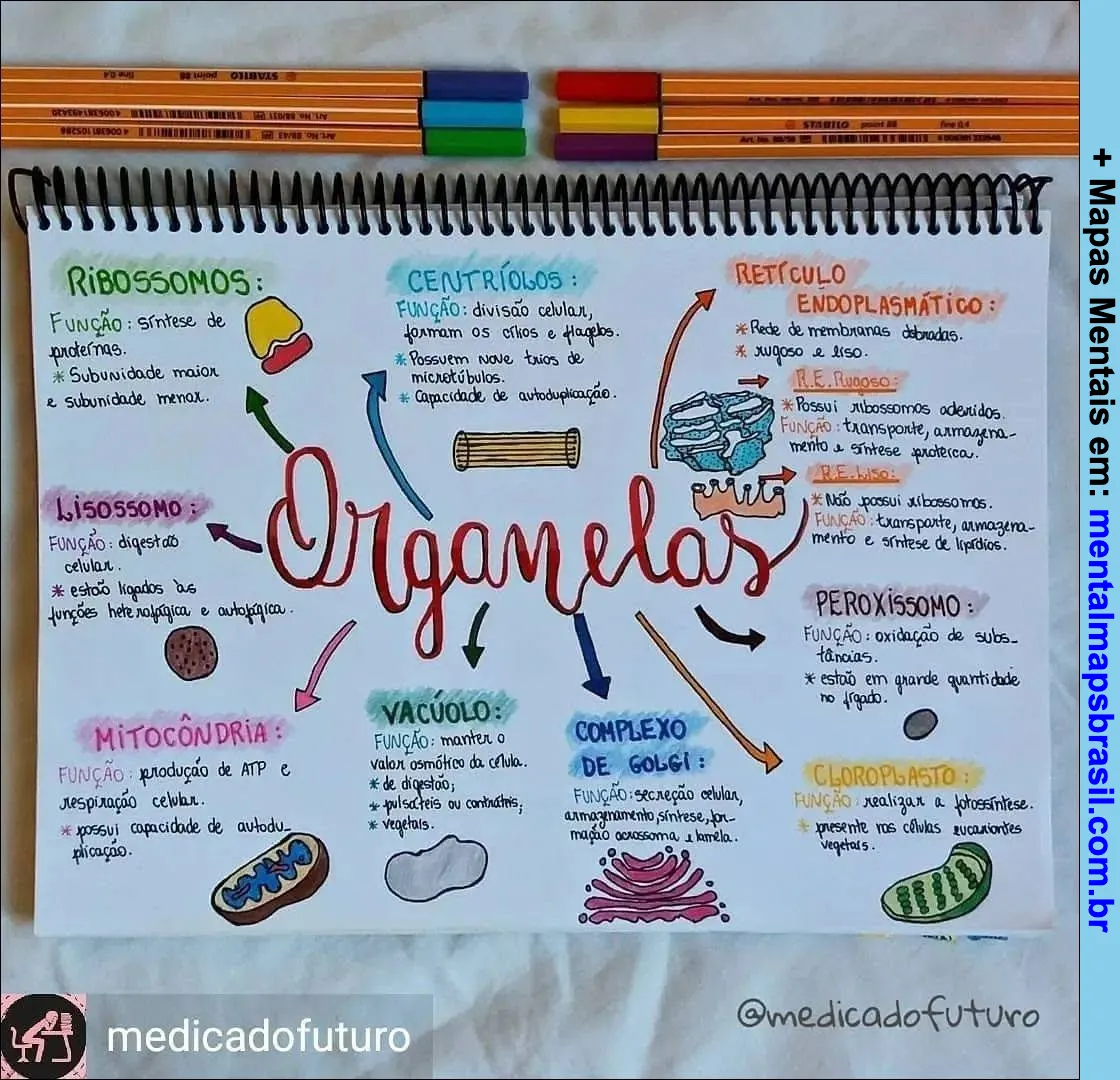 fine 0,4 point 88 STABILO
4006381493420 Art. No. 88/031
4006381105286 Art. No. 88/43
STABILO point 88 fine 0,4
RIBOSSOMOS:
FUNÇÃO: síntese de
proteínas.
* Subunidade maior
e subunidade menor.
CENTRÍOLOS:
FUNÇÃO: divisão celular,
formam os cílios e flagelos.
* Possuem nove trios de
microtúbulos.
* Capacidade de autoduplicação.
RETÍCULO
ENDOPLASMÁTICO:
* Rede de membranas dobradas.
* rugoso e liso.
R.E.Rugoso:
* Possui ribossomos aderidos.
FUNÇÃO: transporte, armazena-
mento e síntese proteica.
R.E.Liso:
* Não possui ribossomos.
FUNÇÃO: transporte, armazena-
mento e síntese de lipídios.
Organelas
LISOSSOMO:
FUNÇÃO: digestão
celular.
* estão ligados às
funções heterofágica e autofágica.
PEROXISSOMO:
FUNÇÃO: oxidação de subs-
tâncias.
* estão em grande quantidade
no fígado.
MITOCÔNDRIA:
FUNÇÃO: produção de ATP e
respiração celular.
* possui capacidade de autodu-
plicação.
VACÚOLO:
FUNÇÃO: manter o
valor osmótico da célula.
* de digestão;
* pulsáteis ou contráteis;
* vegetais.
COMPLEXO
DE GOLGI:
FUNÇÃO: secreção celular,
armazenamento, síntese, for-
mação acrossoma e lamela.
CLOROPLASTO:
FUNÇÃO: realizar a fotossíntese.
* presente nas células eucariontes
vegetais.
medicadofuturo
@medicadofuturo
+ Mapas Mentais em: mentalmapsbrasil.com.br